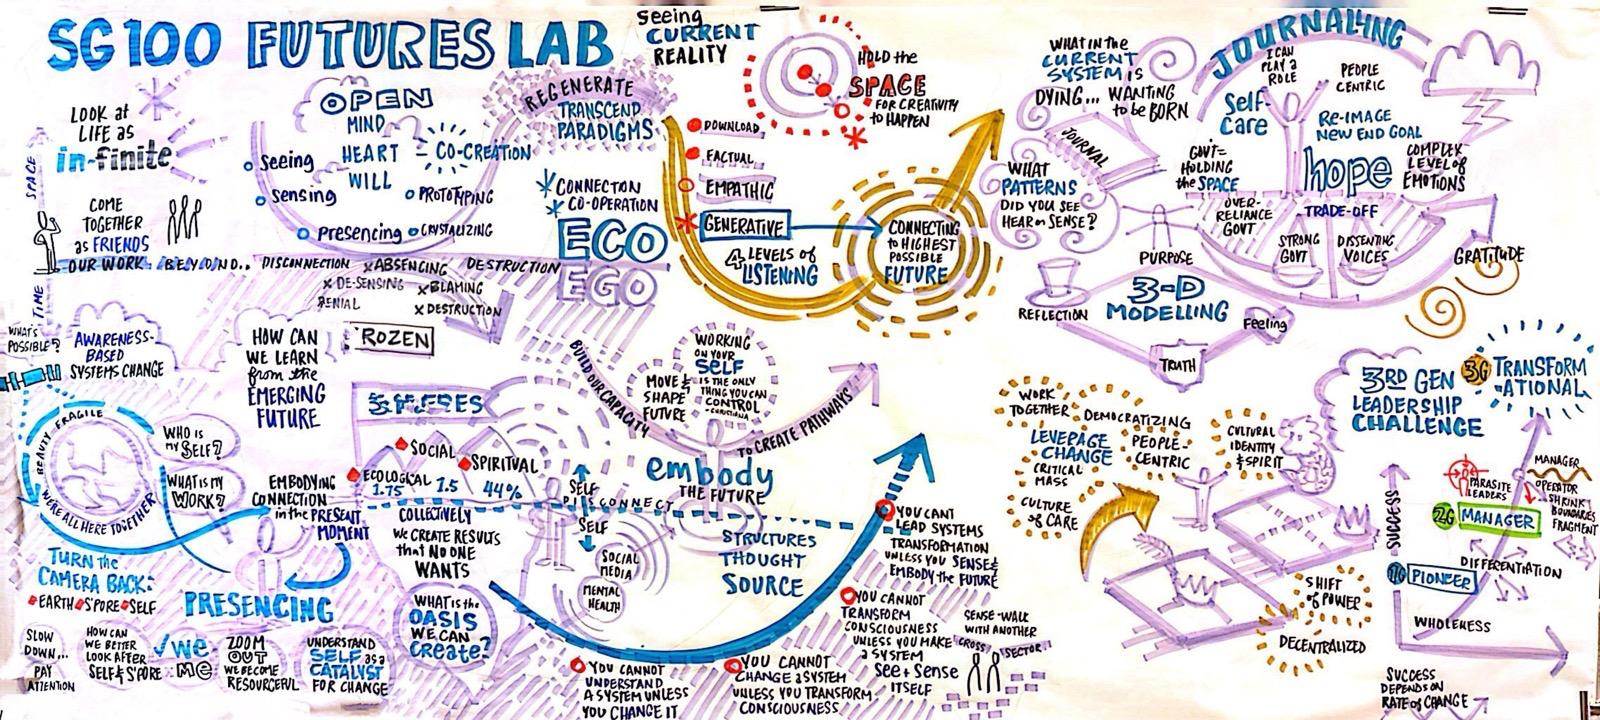 SG100 FUTURES LAB
LOOK at
LIFE as
in-finite
SPACE
TIME
COME
TOGETHER
as FRIENDS
OUR WORK. BEYOND..
OPEN
MIND
HEART = CO-CREATION
WILL
Seeing
Sensing
Presencing
CRYSTALIZING
PROTOTYPING
REGENERATE
TRANSCEND
PARADIGMS
CONNECTON
CO-OPERATION
ECO
EGO
DISCONNECTION
x ABSENCING
DESTRUCTION
x DE-SENSING
x BLAMING
DENIAL
x DESTRUCTION
FROZEN
Seeing
CURRENT
REALITY
HOLD the
SPACE
FOR CREATIVITY
to HAPPEN
DOWNLOAD
FACTUAL
EMPATHIC
GENERATIVE
4 LEVELS of
LISTENING
CONNECTING
to HIGHEST
POSSIBLE
FUTURE
WHAT in the
CURRENT
SYSTEM IS
DYING... WANTING
to be BORN
JOURNAL
WHAT
PATTERNS
DID YOU SEE
HEAR or SENSE?
JOURNALLING
I CAN
PLAY a
ROLE
PEOPLE
CENTRIC
Self-
Care
RE-IMAGE
NEW END GOAL
GOVT=
HOLDING
the SPACE
hope
COMPLEX
LEVEL of
EMOTIONS
OVER-
RELIANCE
GOVT
TRADE-OFF
STRONG
GOVT
DISSENTING
VOICES
GRATITUDE
PURPOSE
3-D
MODELLING
REFLECTION
Feeling
TRUTH
WHAT'S
POSSIBLE?
AWARENESS-
BASED
SYSTEMS CHANGE
HOW CAN
WE LEARN
from the
EMERGING
FUTURE
BEAUTY FRAGILE
WE'RE ALL HERE TOGETHER
WHO IS
MY SELF?
WHAT IS MY
WORK?
TURN the
CAMERA BACK:
EARTH S'PORE SELF
SLOW
DOWN...
PAY
ATTENTION
HOW CAN
WE BETTER
LOOK AFTER
SELF & S'PORE
we
x me
ZOOM
OUT
WE BECOME
RESOURCEFUL
UNDERSTAND
SELF as a
CATALYST
FOR CHANGE
EMBODYING
CONNECTION
in the PRESENT
MOMENT
PRESENCING
ECOLOGICAL
1.75
SOCIAL
1.5
SPIRITUAL
44%
COLLECTIVELY
WE CREATE RESULTS
that NO ONE
WANTS
WHAT IS the
OASIS
WE CAN
Create?
SELF
DISCONNECT
SELF
SOCIAL
MEDIA
MENTAL
HEALTH
BUILD OUR CAPACITY
TO CREATE PATHWAYS
WORKING
ON YOUR
SELF
IS THE ONLY
THING YOU CAN
CONTROL
MOVE &
SHAPE
FUTURE
embody
THE FUTURE
STRUCTURES
THOUGHT
SOURCE
YOU CANNOT
UNDERSTAND
A SYSTEM UNLESS
YOU CHANGE IT
YOU CANNOT
CHANGE a SYSTEM
UNLESS YOU TRANSFORM
CONSCIOUSNESS
YOU CANNOT
TRANSFORM
CONSCIOUSNESS
UNLESS YOU MAKE
a SYSTEM
See + Sense
ITSELF
YOU CANT
LEAD SYSTEMS
TRANSFORMATION
UNLESS YOU SENSE &
EMBODY the FUTURE
SENSE-WALK
WITH ANOTHER
CROSS SECTOR
WORK
TOGETHER
DEMOCRATIZING
LEVERAGE
CHANGE
PEOPLE-
CENTRIC
CRITICAL
MASS
CULTURE
of CARE
CULTURAL
IDENTITY
& SPIRIT
SHIFT
of POWER
DECENTRALIZED
3RD GEN
LEADERSHIP
CHALLENGE
3G TRANSFORM
-ATIONAL
PARASITE
LEADERS
MANAGER
OPERATOR
SHRINK
BOUNDARIES
FRAGMENT
2G MANAGER
DIFFERENTIATION
1G PIONEER
WHOLENESS
SUCCESS
SUCCESS
DEPENDS ON
RATE of CHANGE